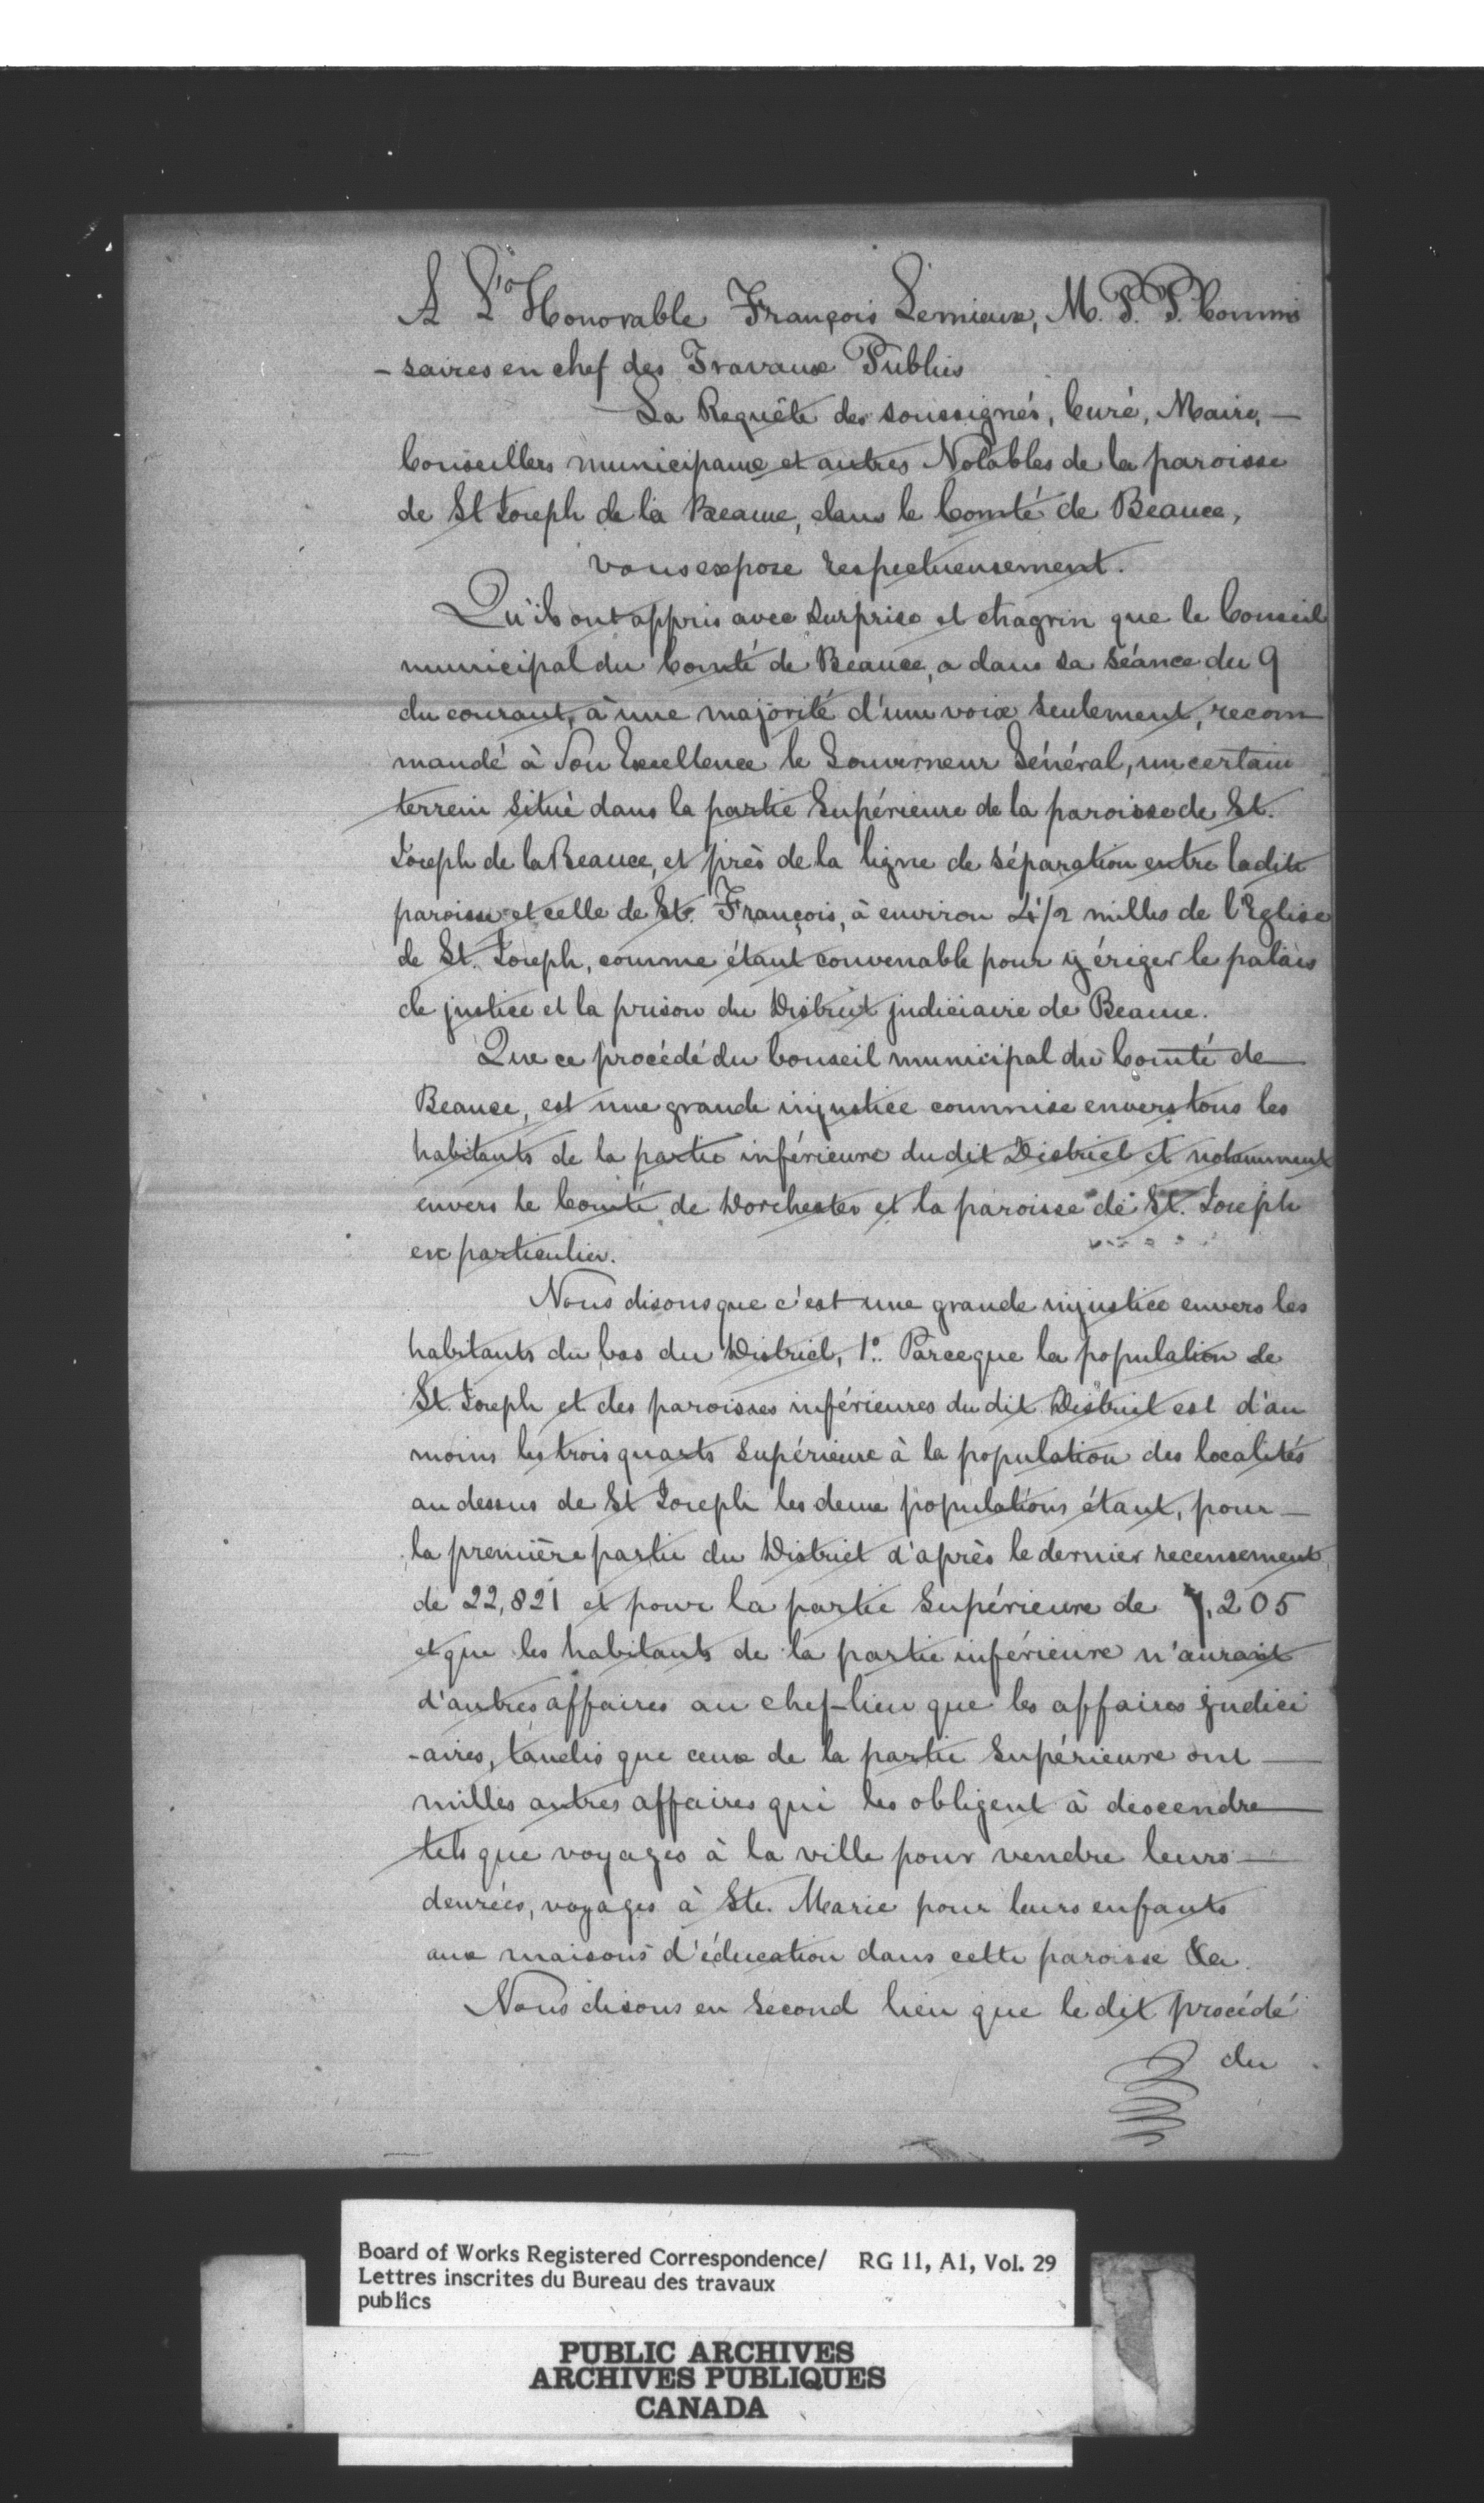 A L'Honorable François Lemieux, M. P. P. Commis
-saires en chef des Travaux Publics
La Requête des soussignés, Curé, Maire,
Conseillers municipaux et autres Notables de la paroisse
de St Joseph de la Beauce, dans le Comté de Beauce,
vous expose respectueusement.
Qu'ils ont appris avec surprise et chagrin que le Conseil
municipal du Comté de Beauce, a dans sa séance du 9
du courant, à une majorité d'une voix seulement, recom
mandé à Son Excellence le Gouverneur Général, un certain
terrein situé dans la partie Supérieure de la paroisse de St.
Joseph de la Beauce, et près de la ligne de séparation entre ladite
paroisse et celle de St. François, à environ 4 1/2 milles de l'Eglise
de St. Joseph, comme étant convenable pour y ériger le palais
de justice et la prison du District judiciaire de Beauce.
Que ce procédé du Conseil municipal du Comté de
Beauce, est une grande injustice commise envers tous les
habitants de la partie inférieure du dit District et notamment
envers le Comté de Dorchester et la paroisse de St. Joseph
en particulier.
Nous disons que c'est une grande injustice envers les
habitants du bas du District, 1º. Parceque la population de
St. Joseph et des paroisses inférieures du dit District est d'au
moins les trois quarts Supérieure à la population des localités
au dessus de St Joseph les deux populations étant, pour
la première partie du District d'après le dernier recensement
de 22,821 et pour la partie Supérieure de 7,205
et que les habitants de la partie inférieure n'auraient
d'autres affaires au chef-lieu que les affaires judici
-aires, tandis que ceux de la partie Supérieure ont
milles autres affaires qui les obligent à descendre
tels que voyages à la ville pour vendre leurs
denrées, voyages à Ste. Marie pour leurs enfants
aux maisons d'éducation dans cette paroisse &ca.
Nous disons en second lieu que le dit procédé
du
Board of Works Registered Correspondence/ RG 11, A1, Vol. 29
Lettres inscrites du Bureau des travaux
publics
PUBLIC ARCHIVES
ARCHIVES PUBLIQUES
CANADA